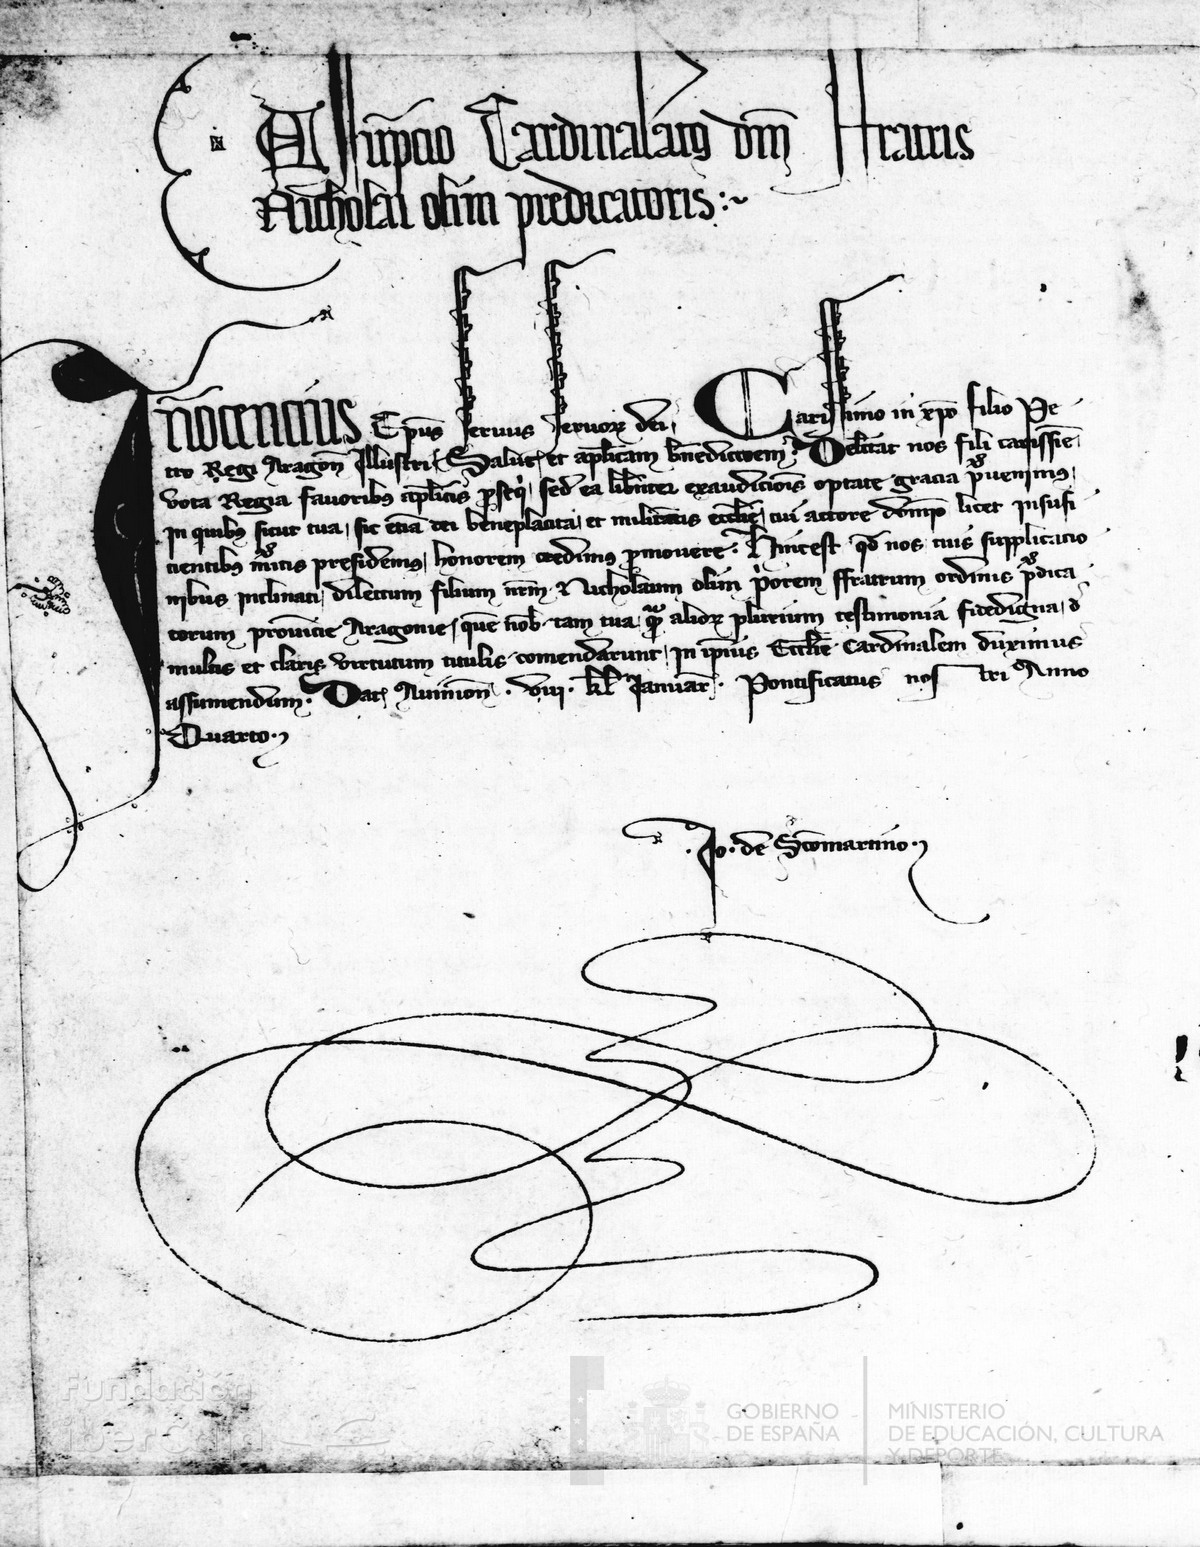 Assūpcio Cardinalatꝰ dm̄ Fratris
Nicholai olim predicatoris :~
Īnocencius Ep̄us seruus seruoꝝ dei, Carissimo in xp̄o filio Pe
tro Regi Aragon̄ Illustri, Salut̄ et ap̄licam bn̄edictōem. Delectat nos fili carissīe
vota Regia fauoribꝫ ap̄licis ꝓseq̇, sed ea libenter exaudicionis optate gracia ꝓuenimus,
in quibꝫ sicut tua, sic etiā dei beneplacita, et militātis eccl̄ie, cui actore dom̄o licet insufi
cientibꝫ m̄itis presidemus, honorem credimus ꝓmouere. Hinc est qd̄ nos tuis supplicacio
nibus inclinati, dilectum filium nr̄m Nicholaum olim p̓orem ffratrum ordinis p̄dica
torum prouincie Aragonie, quē nob̄ tam tua, qꝫ alioꝝ plurium testimonia fidedigna, d̄
multis et claris virtutum titulis comendarunt, in ip̄ius Eccl̄ie Cardinalem duximus
assumendum. Dat̄ Auinion̄ . viii . kl̄ Januar̄ . Pontificatus nos tri Anno
Quarto.
. Jo . de Sc̄omartino .
Fundación
iberCaja
GOBIERNO
DE ESPAÑA
MINISTERIO
DE EDUCACIÓN, CULTURA
Y DEPORTE